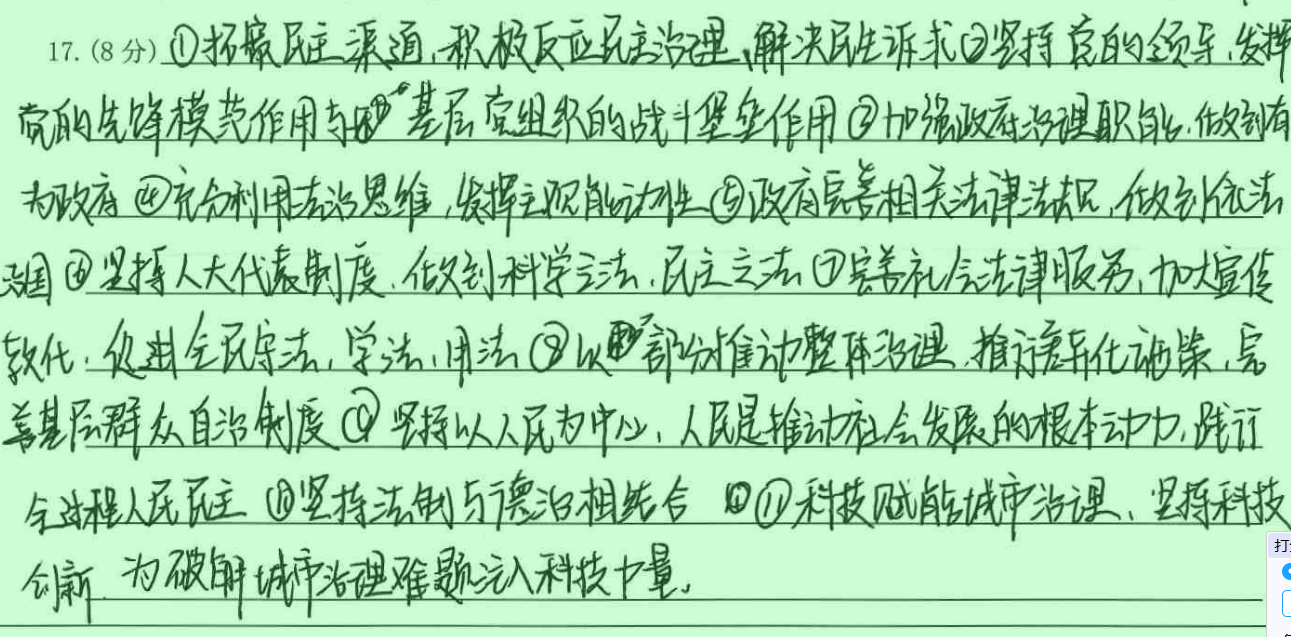 17. (8 分) ①拓展民主渠道，积极反应民主治理、解决民生诉求②坚持党的领导，发挥
党的先锋模范作用与基层党组织的战斗堡垒作用③加强政府治理职能，做到有
为政府 ④充分利用法治思维，发挥主观能动性⑤政府完善相关法律法规，做到依法
治国 ⑥坚持人大代表制度，做到科学立法，民主立法⑦完善社会法律服务，加大宣传
教化，促进全民守法，学法，用法⑧以部分推动整体治理，推行差异化政策，完
善基层群众自治制度⑨坚持以人民为中心，人民是推动社会发展的根本动力，践行
全过程人民民主 ⑩坚持法制与德治相结合 ⑪科技赋能城市治理、坚持科技
创新 为破解城市治理难题注入科技力量。
打